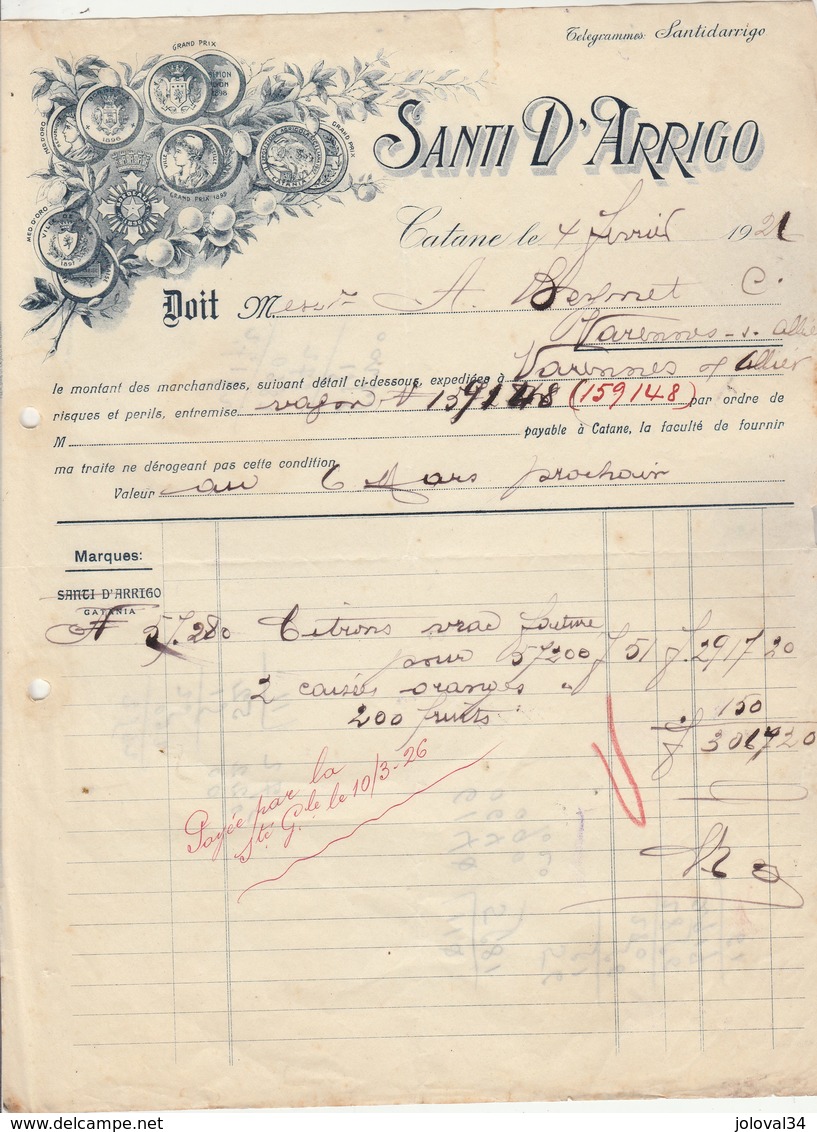 Telegrammes: Santidarrigo
GRAND PRIX
SANTI D'ARRIGO
GRAND PRIX
MED. D'ORO
1896
GRAND PRIX 1898
MED D'ORO
VILLE DE
1897
Catane le 4 février 1926
Doit M
A. C.
Varennes-s-Allier
le montant des marchandises, suivant détail ci-dessous, expediées à Varennes s/ Allier
risques et perils, entremise vagon N 159148 (159148) par ordre de
M payable à Catane, la faculté de fournir
ma traite ne dérogeant pas cette condition
Valeur au 6 Mars prochain
Marques:
SANTI D'ARRIGO
CATANIA
57.280 Citrons vrac
pour 57200 f 51 f. 2917 20
2 caises oranges
200 fruits 150
f 3067 20
Payée par la
Sté Gle le 10/3-26
joloval34